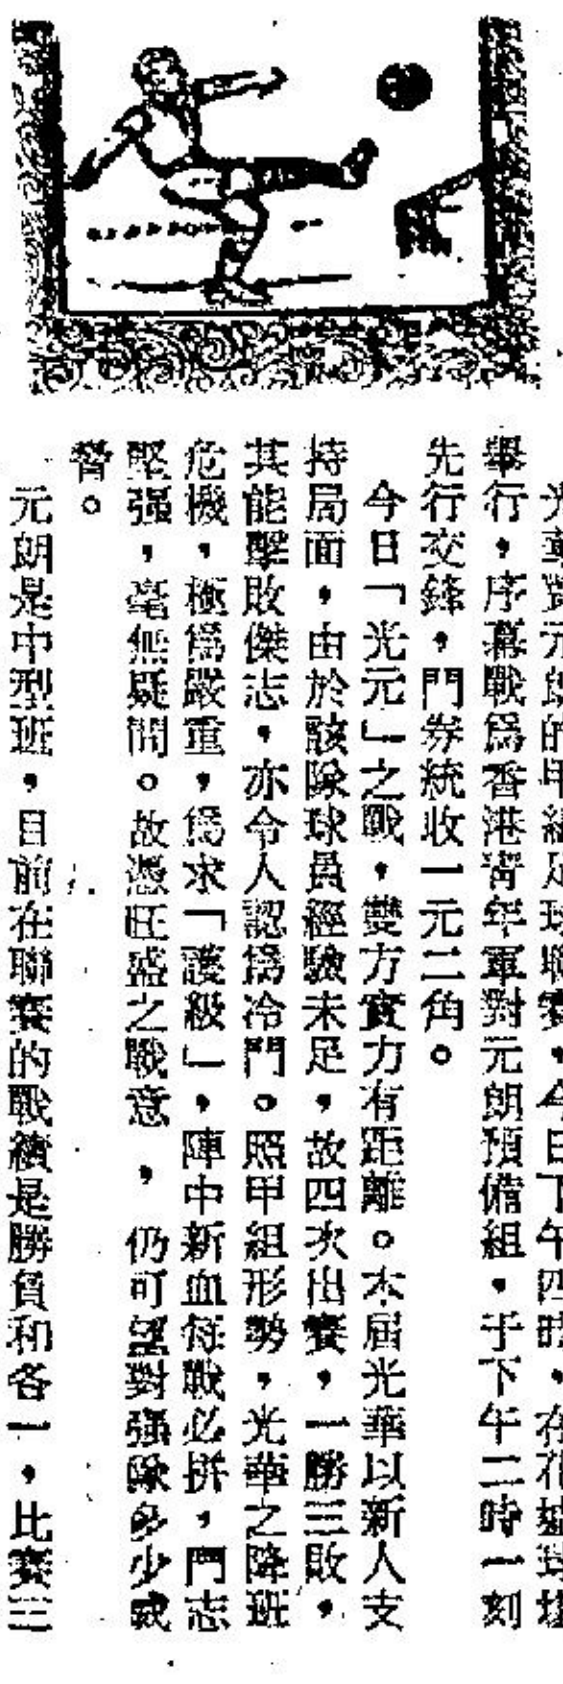 光華對元朗的甲組足球聯賽，今日下午四時，在花墟球場
舉行，序幕戰爲香港青年軍對元朗預備組，于下午二時一刻
先行交鋒，門券統收一元二角。
今日「光元」之戰，雙方實力有距離。本屆光華以新人支
持局面，由於該隊球員經驗未足，故四次出賽，一勝三敗，
其能擊敗傑志，亦令人認爲冷門。照甲組形勢，光華之降班
危機，極爲嚴重，爲求「護級」，陣中新血每戰必拼，鬥志
堅强，毫無疑問。故憑旺盛之戰意，仍可望對强隊多少威
脅。
元朗是中型班，目前在聯賽的戰績是勝負和各一，比賽三